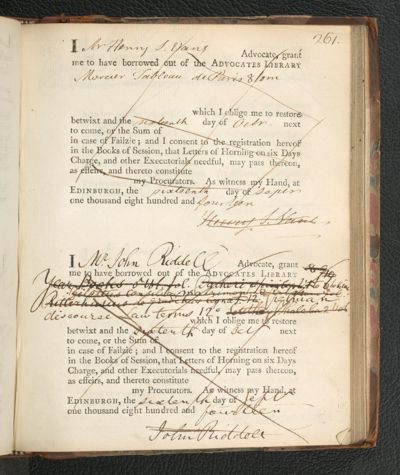 261.
I Mr Henry S.
Advocate, grant
me to have borrowed out of the ADVOCATES LIBRARY
Mercier Tableau de Paris 8
which I oblige me to restore
betwixt and the sixteenth day of Octr. next
to come, or the Sum of
in case of Failzie; and I consent to the registration hereof
in the Books of Session, that Letters of Horning on six Days
Charge, and other Executorials needful, may pass thereon,
as effeirs, and thereto constitute
my Procurators. As witness my Hand, at
EDINBURGH, the sixteenth day of
one thousand eight hundred and fourteen
Henry S.
I Mr. John Riddell Advocate, grant
me to have borrowed out of the ADVOCATES LIBRARY
Year Books
discourse Law terms 12o
which I oblige me to restore
betwixt and the sixteenth day of Octr next
to come, or the Sum of
in case of Failzie; and I consent to the registration hereof
in the Books of Session, that Letters of Horning on six Days
Charge, and other Executorials needful, may pass thereon,
as effeirs, and thereto constitute
my Procurators. As witness my Hand, at
EDINBURGH, the sixteenth day of Septr
one thousand eight hundred and fourteen
John Riddell